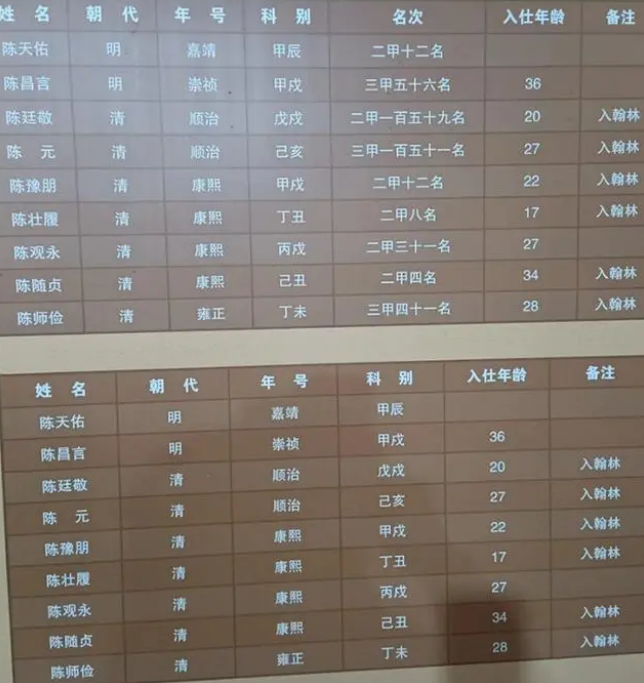 姓 名 朝 代 年 号 科 别 名次 入仕年龄 备注
陈天佑 明 嘉靖 甲辰 二甲十二名
陈昌言 明 崇祯 甲戌 三甲五十六名 36
陈廷敬 清 顺治 戊戌 二甲一百五十九名 20 入翰林
陈 元 清 顺治 己亥 三甲一百五十一名 27 入翰林
陈豫朋 清 康熙 甲戌 二甲十二名 22 入翰林
陈壮履 清 康熙 丁丑 二甲八名 17 入翰林
陈观永 清 康熙 丙戌 二甲三十一名 27
陈随贞 清 康熙 己丑 二甲四名 34 入翰林
陈师俭 清 雍正 丁未 三甲四十一名 28 入翰林
姓 名 朝 代 年 号 科 别 入仕年龄 备注
陈天佑 明 嘉靖 甲辰
陈昌言 明 崇祯 甲戌 36
陈廷敬 清 顺治 戊戌 20 入翰林
陈 元 清 顺治 己亥 27 入翰林
陈豫朋 清 康熙 甲戌 22 入翰林
陈壮履 清 康熙 丁丑 17 入翰林
陈观永 清 康熙 丙戌 27
陈随贞 清 康熙 己丑 34 入翰林
陈师俭 清 雍正 丁未 28 入翰林